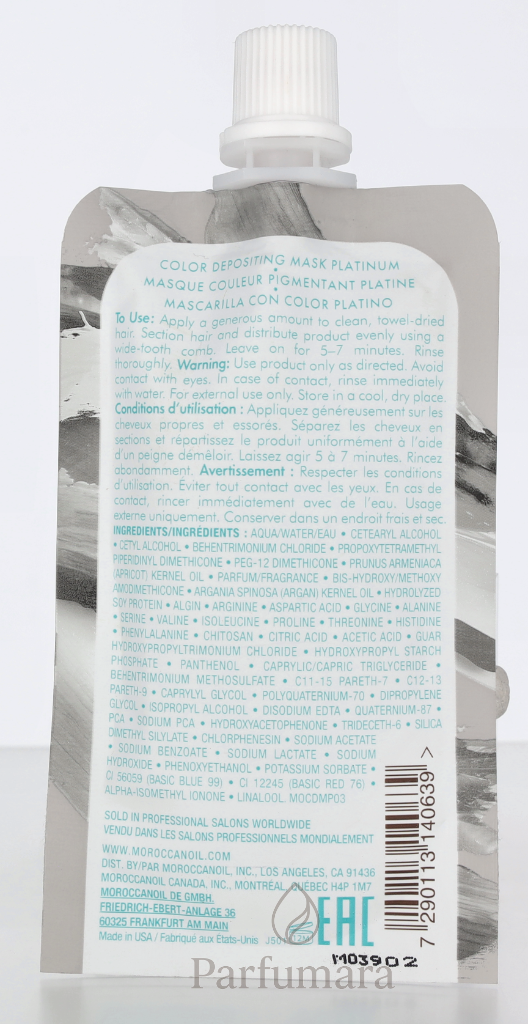 COLOR DEPOSITING MASK PLATINUM
•
MASQUE COULEUR PIGMENTANT PLATINE
•
MASCARILLA CON COLOR PLATINO
To Use: Apply a generous amount to clean, towel-dried
hair. Section hair and distribute product evenly using a
wide-tooth comb. Leave on for 5–7 minutes. Rinse
thoroughly. Warning: Use product only as directed. Avoid
contact with eyes. In case of contact, rinse immediately
with water. For external use only. Store in a cool, dry place.
Conditions d'utilisation : Appliquez généreusement sur les
cheveux propres et essorés. Séparez les cheveux en
sections et répartissez le produit uniformément à l'aide
d'un peigne démêloir. Laissez agir 5 à 7 minutes. Rincez
abondamment. Avertissement : Respecter les conditions
d'utilisation. Éviter tout contact avec les yeux. En cas de
contact, rincer immédiatement avec de l'eau. Usage
externe uniquement. Conserver dans un endroit frais et sec.
INGREDIENTS/INGRÉDIENTS : AQUA/WATER/EAU • CETEARYL ALCOHOL
• CETYL ALCOHOL • BEHENTRIMONIUM CHLORIDE • PROPOXYTETRAMETHYL
PIPERIDINYL DIMETHICONE • PEG-12 DIMETHICONE • PRUNUS ARMENIACA
(APRICOT) KERNEL OIL • PARFUM/FRAGRANCE • BIS-HYDROXY/METHOXY
AMODIMETHICONE • ARGANIA SPINOSA (ARGAN) KERNEL OIL • HYDROLYZED
SOY PROTEIN • ALGIN • ARGININE • ASPARTIC ACID • GLYCINE • ALANINE
• SERINE • VALINE • ISOLEUCINE • PROLINE • THREONINE • HISTIDINE
• PHENYLALANINE • CHITOSAN • CITRIC ACID • ACETIC ACID • GUAR
HYDROXYPROPYLTRIMONIUM CHLORIDE • HYDROXYPROPYL STARCH
PHOSPHATE • PANTHENOL • CAPRYLIC/CAPRIC TRIGLYCERIDE •
BEHENTRIMONIUM METHOSULFATE • C11-15 PARETH-7 • C12-13
PARETH-9 • CAPRYLYL GLYCOL • POLYQUATERNIUM-70 • DIPROPYLENE
GLYCOL • ISOPROPYL ALCOHOL • DISODIUM EDTA • QUATERNIUM-87 •
PCA • SODIUM PCA • HYDROXYACETOPHENONE • TRIDECETH-6 • SILICA
DIMETHYL SILYLATE • CHLORPHENESIN • SODIUM ACETATE
• SODIUM BENZOATE • SODIUM LACTATE • SODIUM
HYDROXIDE • PHENOXYETHANOL • POTASSIUM SORBATE •
CI 56059 (BASIC BLUE 99) • CI 12245 (BASIC RED 76) •
ALPHA-ISOMETHYL IONONE • LINALOOL. MOCDMP03
SOLD IN PROFESSIONAL SALONS WORLDWIDE
VENDU DANS LES SALONS PROFESSIONNELS MONDIALEMENT
WWW.MOROCCANOIL.COM
DIST. BY/PAR MOROCCANOIL, INC., LOS ANGELES, CA 91436
MOROCCANOIL CANADA, INC., MONTRÉAL, QUÉBEC H4P 1M7
MOROCCANOIL DE GMBH,
FRIEDRICH-EBERT-ANLAGE 36
60325 FRANKFURT AM MAIN
Made in USA / Fabriqué aux États-Unis
12M
EAC
7 290113 140639 >
M03902
Parfumara